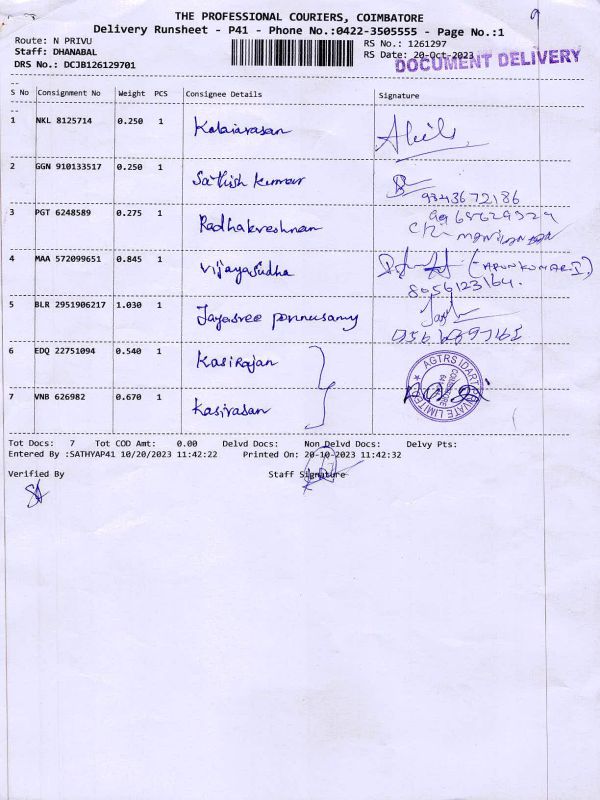 THE PROFESSIONAL COURIERS, COIMBATORE
9
Delivery Runsheet - P41 - Phone No.:0422-3505555 - Page No.:1
Route: N PRIVU
RS No.: 1261297
Staff: DHANABAL
RS Date: 20-Oct-2023
DRS No.: DCJB126129701
DOCUMENT DELIVERY
S No Consignment No Weight PCS Consignee Details Signature
1 NKL 8125714 0.250 1 Kalaiarasan
2 GGN 910133517 0.250 1 Sathish kumar
9343672186
3 PGT 6248589 0.275 1 Radhakreshnan
4 MAA 572099651 0.845 1 Vijayasudha (ARUNKUMAR
8056123164.
5 BLR 2951906217 1.030 1 Jayasree ponnusamy
6 EDQ 22751094 0.540 1 Kasirajan
7 VNB 626982 0.670 1 Kasirasan
Tot Docs: 7 Tot COD Amt: 0.00 Delvd Docs: Non Delvd Docs: Delvy Pts:
Entered By :SATHYAP41 10/20/2023 11:42:22 Printed On: 20-10-2023 11:42:32
Verified By Staff Signature